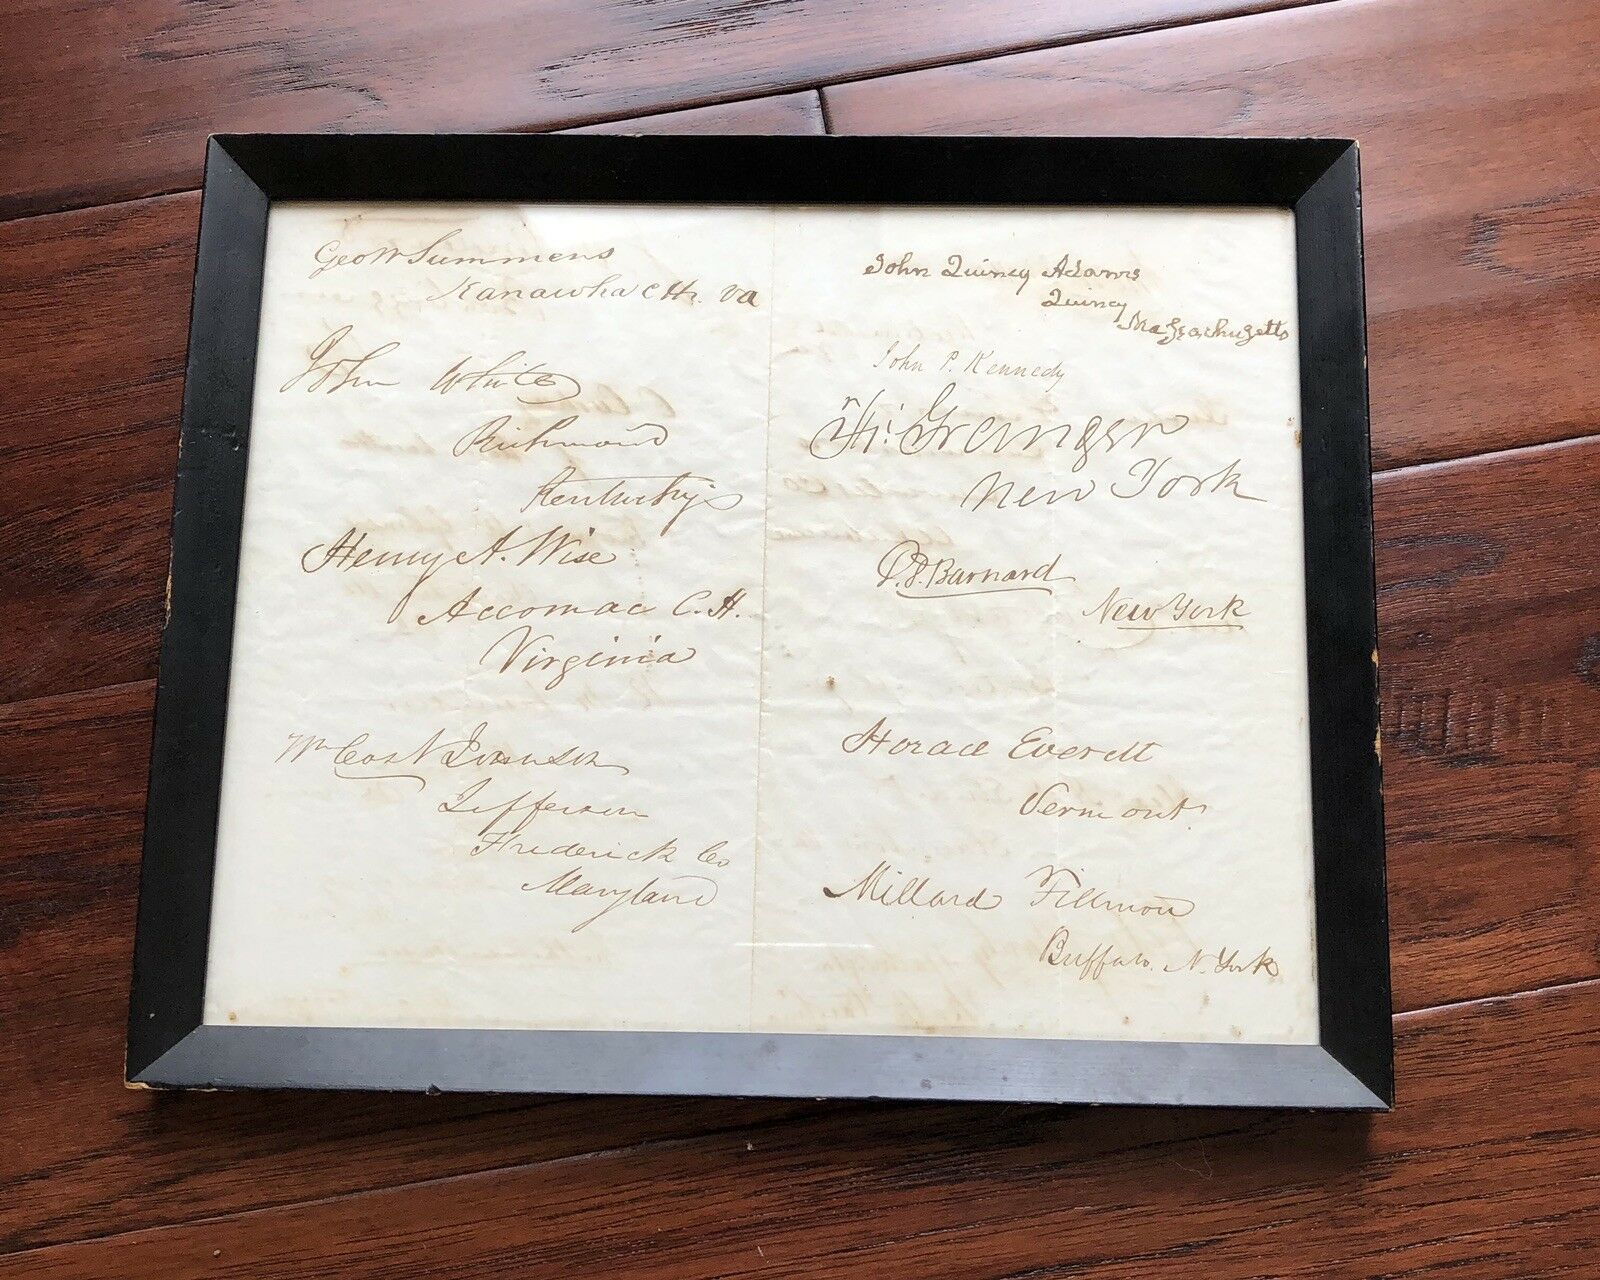 Geo W Summers
Kanawha C H. Va
John White
Richmond
Kentucky
Henry A. Wise
Accomac C. H.
Virginia
Wm Cost Johnson
Jefferson
Frederick Co
Maryland
John Quincy Adams
Quincy
Massachusetts
John P. Kennedy
Fr: Granger
New York
D. D. Barnard
New York
Horace Everett
Vermont.
Millard Fillmore
Buffalo. N. York